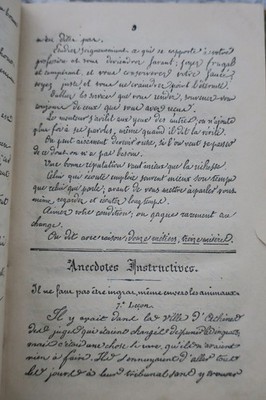 9
Etudiez soigneusement ce qui se rapporte à votre
profession et vous deviendrez savant; soyez frugal
et tempérant, et vous conserverez votre santé;
soyez juste et vous ne craindrez point l'éternité.
Oubliez les services que vous rendez, souvenez-vous
toujours de ceux que vous avez reçus.
Le menteur s'avilit aux yeux des autres, on n'ajoute
plus foi à ses paroles, même quand il dit la vérité.
On peut aisément devenir riche, si l'on veut se passer
de ce dont on n'a pas besoin.
Une bonne réputation vaut mieux que la richesse.
Celui qui écoute emploie souvent mieux son temps
que celui qui parle; avant de vous mettre à parler vous
même regardez et écoutez longtemps.
Aimez votre condition; on gagne rarement au
change.
On dit avec raison, douze métiers, treize misères.
Anecdotes Instructives.
Il ne faut pas être ingrat, même envers les animaux.
7e Leçon.
Il y avait dans la ville d'
des juges qui étaient chargés de punir les ingrats,
mais c'était une chose si rare, qu'ils n'avaient
rien à faire. Ils s'ennuyaient d'aller tout
le jour à leur tribunal sans y trouver